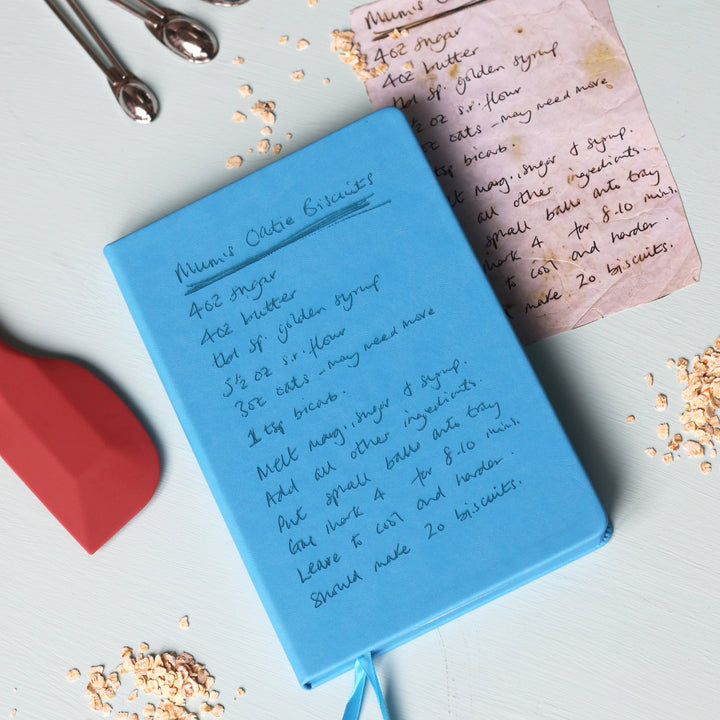 Mum's Oatie Biscuits
4oz sugar
4oz butter
tbl sp. golden syrup
5½ oz s.r. flour
3oz oats - may need more
1 tsp bicarb.
Melt marg, sugar & syrup.
Add all other ingredients.
Put small balls onto tray
Gas mark 4 for 8-10 mins.
Leave to cool and harden.
Should make 20 biscuits.
Mum's
4oz sugar
4oz butter
tbl sp. golden syrup
½ oz s.r. flour
oz oats - may need more
tsp bicarb.
marg, sugar & syrup.
all other ingredients.
small balls onto tray
mark 4 for 8-10 mins.
to cool and harden.
make 20 biscuits.